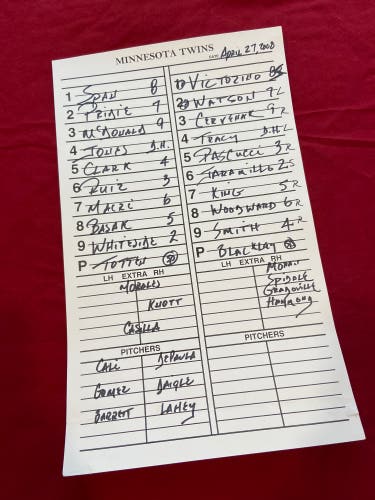 MINNESOTA TWINS
DATE APRIL 27, 2008
1 SPAN 8
2 PRIDIE 7
3 McDONALD 9
4 JONES D.H.
5 CLARK 4
6 RUIZ 3
7 MACRI 6
8 BASAK 5
9 WHITESIDE 2
P TOTTEN 50
LH EXTRA RH
MORALES
KNOTT
CASILLA
PITCHERS
CALI DEPAULA
GOMEZ DAIGLE
BARRETT LAHEY
1 VICTORINO 8S
2 WATSON 7L
3 CERVENAK 9R
4 TRACY D.H. L
5 PASCUCCI 3R
6 JARAMILLO 2S
7 KING 5R
8 WOODWARD 6R
9 SMITH 4R
P BLACKLEY
LH EXTRA RH
SPIDALE
HAMMOND
PITCHERS